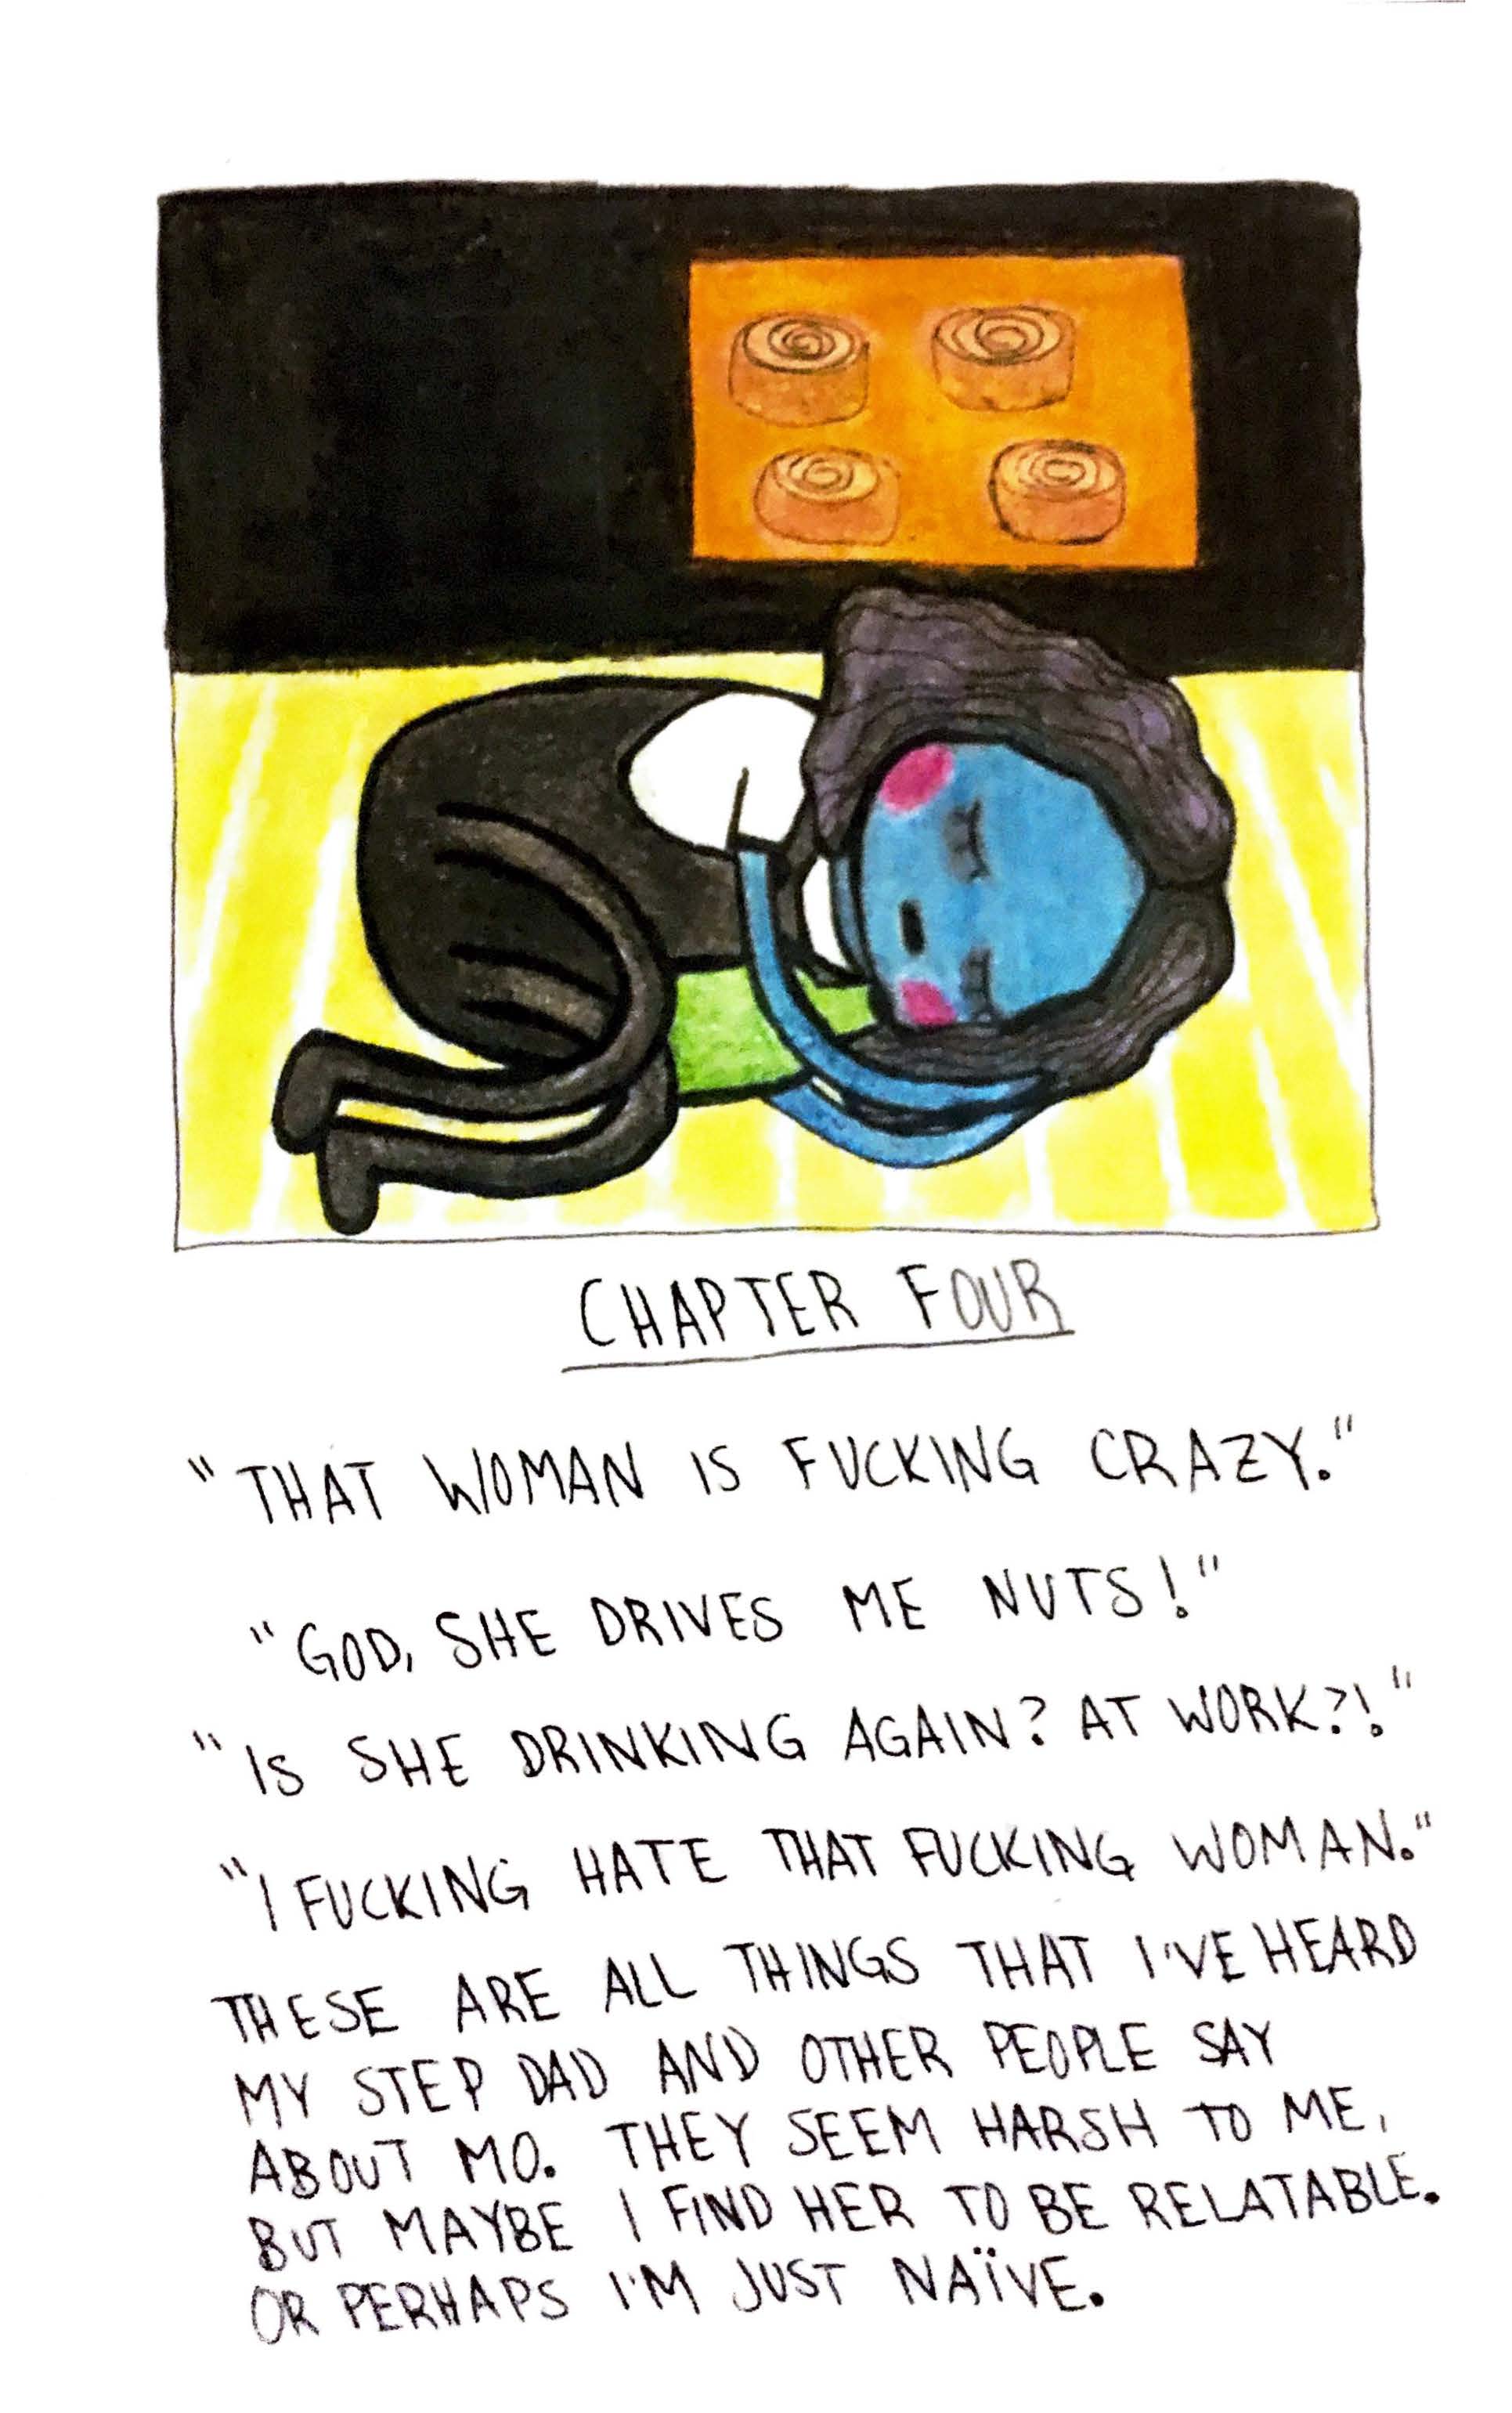 CHAPTER FOUR
"THAT WOMAN IS FUCKING CRAZY."
"GOD, SHE DRIVES ME NUTS!"
"IS SHE DRINKING AGAIN? AT WORK?!"
"I FUCKING HATE THAT FUCKING WOMAN."
THESE ARE ALL THINGS THAT I'VE HEARD
MY STEP DAD AND OTHER PEOPLE SAY
ABOUT MO. THEY SEEM HARSH TO ME,
BUT MAYBE I FIND HER TO BE RELATABLE.
OR PERHAPS I'M JUST NAÏVE.